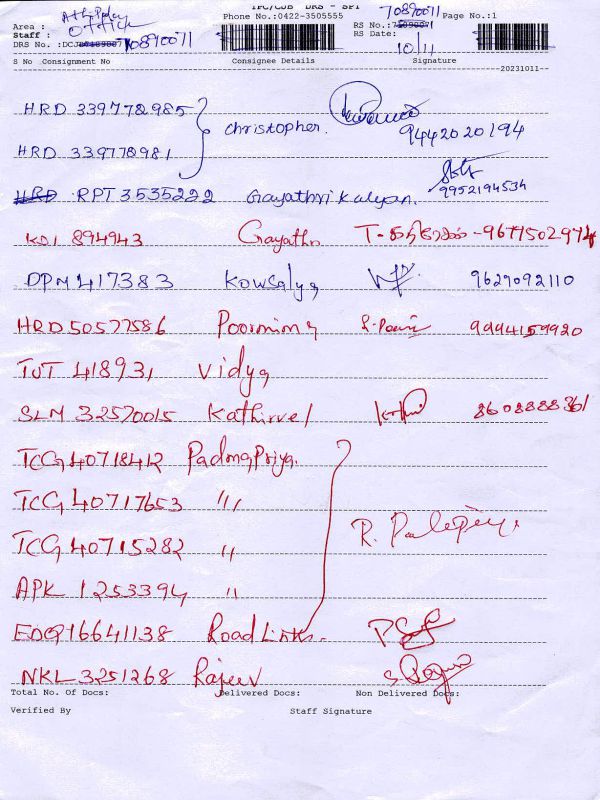 TPC/CJB DRS - SPI
Phone No.:0422-3505555
70890071
Page No.:1
Area :
Staff :
RS No.:
DRS No. :DCJ 70890071
RS Date: 10/11
S No Consignment No Consignee Details Signature
20231011
HRD 339778985
Christopher.
9442020194
HRD 339778981
RPT 3535222 Gayathri Kalyan. 9952194534
KDI 894943 Gayathri
DPM 417383 Kowsalya 9629092110
HRD 50577586 Poornima 9994159920
TUT 418931 Vidya
SLM 32570015 Kathirvel 8608888361
TCG 40718412 PadmaPriya.
TCG 40717653 "
TCG 40715282 "
APK 1253394 "
EDQ16641138 Road Links.
NKL 3251268 Rajeev
Total No. Of Docs: Delivered Docs: Non Delivered Docs:
Verified By Staff Signature